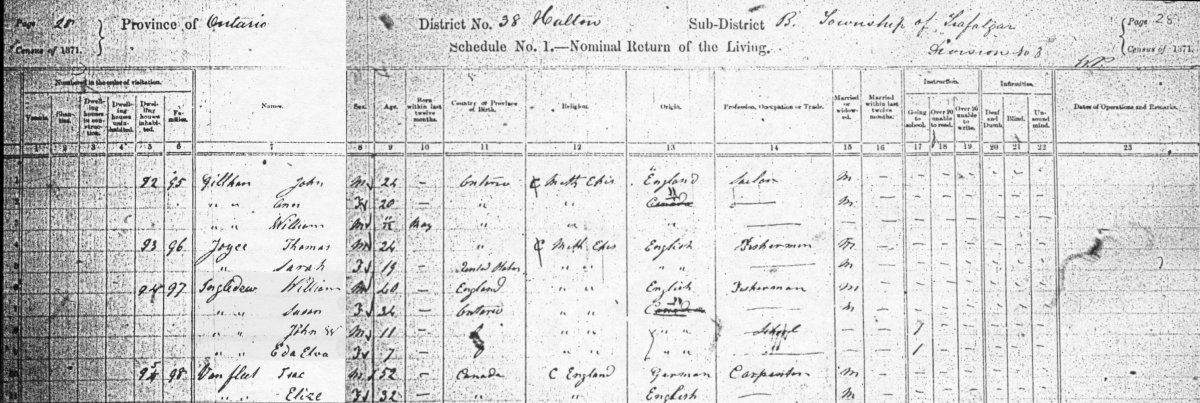 Page 28 Province of Ontario District No. 38 Halton Sub-District B. Township of Trafalgar Page 28
Census of 1871. Schedule No. 1.—Nominal Return of the Living. Division No 3 Census of 1871.
Numbered in the order of visitation. Instruction. Infirmities.
Vessels. Shanties. Dwelling houses in construction. Dwelling houses uninhabited. Dwelling houses inhabited. Families. Names. Sex. Age. Born within last twelve months. Country or Province of Birth. Religion. Origin. Profession, Occupation or Trade. Married or widowed. Married within last twelve months. Going to school. Over 20 unable to read. Over 20 unable to write. Deaf and Dumb. Blind. Unsound mind. Dates of Operations and Remarks.
1 2 3 4 5 6 7 8 9 10 11 12 13 14 15 16 17 18 19 20 21 22 23
1 92 95 Gillham John M 24 — Ontario C Meth Epis England Sailor M — — — — — — —
2 " " Ann F 20 — " " " " Canada — M — — — — — — —
3 " " William M May " " " " — — — — — — — —
4 93 96 Joyce Thomas M 24 — " C Meth Epis English Fisherman M — — — — — — —
5 " " Sarah F 19 — United States " " " " — M — — — — — — —
6 94 97 Ingledew William M 40 — England " " English Fisherman M — — — — — — —
7 " " Susan F 34 — Ontario " " " Canada — M — — — — — — —
8 " " John W M 11 — " " " " " School — — 1 — — — — —
9 " " Eda Elva F 7 — " " " " " " — — 1 — — — — —
10 95 98 Vanfleet Isac M 52 — Canada C England German Carpenter M — — — — — — —
11 " " Elize F 32 — " " English — M — — — — — — —